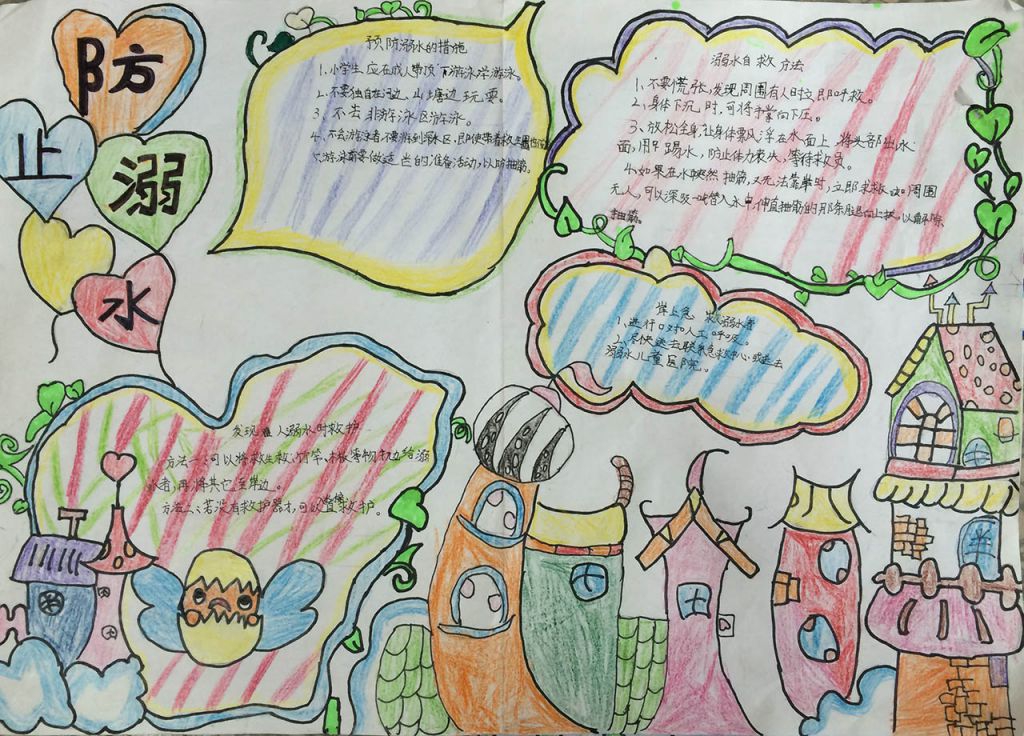 防
止
溺
水
预防溺水的措施
1、小学生应在成人带领下游泳学游泳。
2、不要独自在河边、山塘边玩耍。
3、不去非游泳区游泳。
4、不会游泳者不要游到深水区,即使带着救生圈
游泳前要做适当的准备活动,以防抽筋。
溺水自救方法
1、不要慌张,发现周围有人时立即呼救。
2、身体下沉时,可将手掌向下压。
3、放松全身,让身体飘浮在水面上,将头部出水
面,用脚踢水,防止体力丧失,等待救员。
4、如果在水中突然抽筋,又无法靠岸时,立即求救。如周围
无人,可以深吸一口气潜入水中,伸直抽筋的那条腿
抽筋。
岸上急救溺水者
1、进行口对口人工呼吸。
2、尽快送去联系急救中心或送去
溺水儿童医院。
发现 人溺水时救护
方法一:可以将救生 、竹竿、木板等物抛给溺
水者,再将其 至岸边。
方法二:若没有救护器材,可以 直接救护。